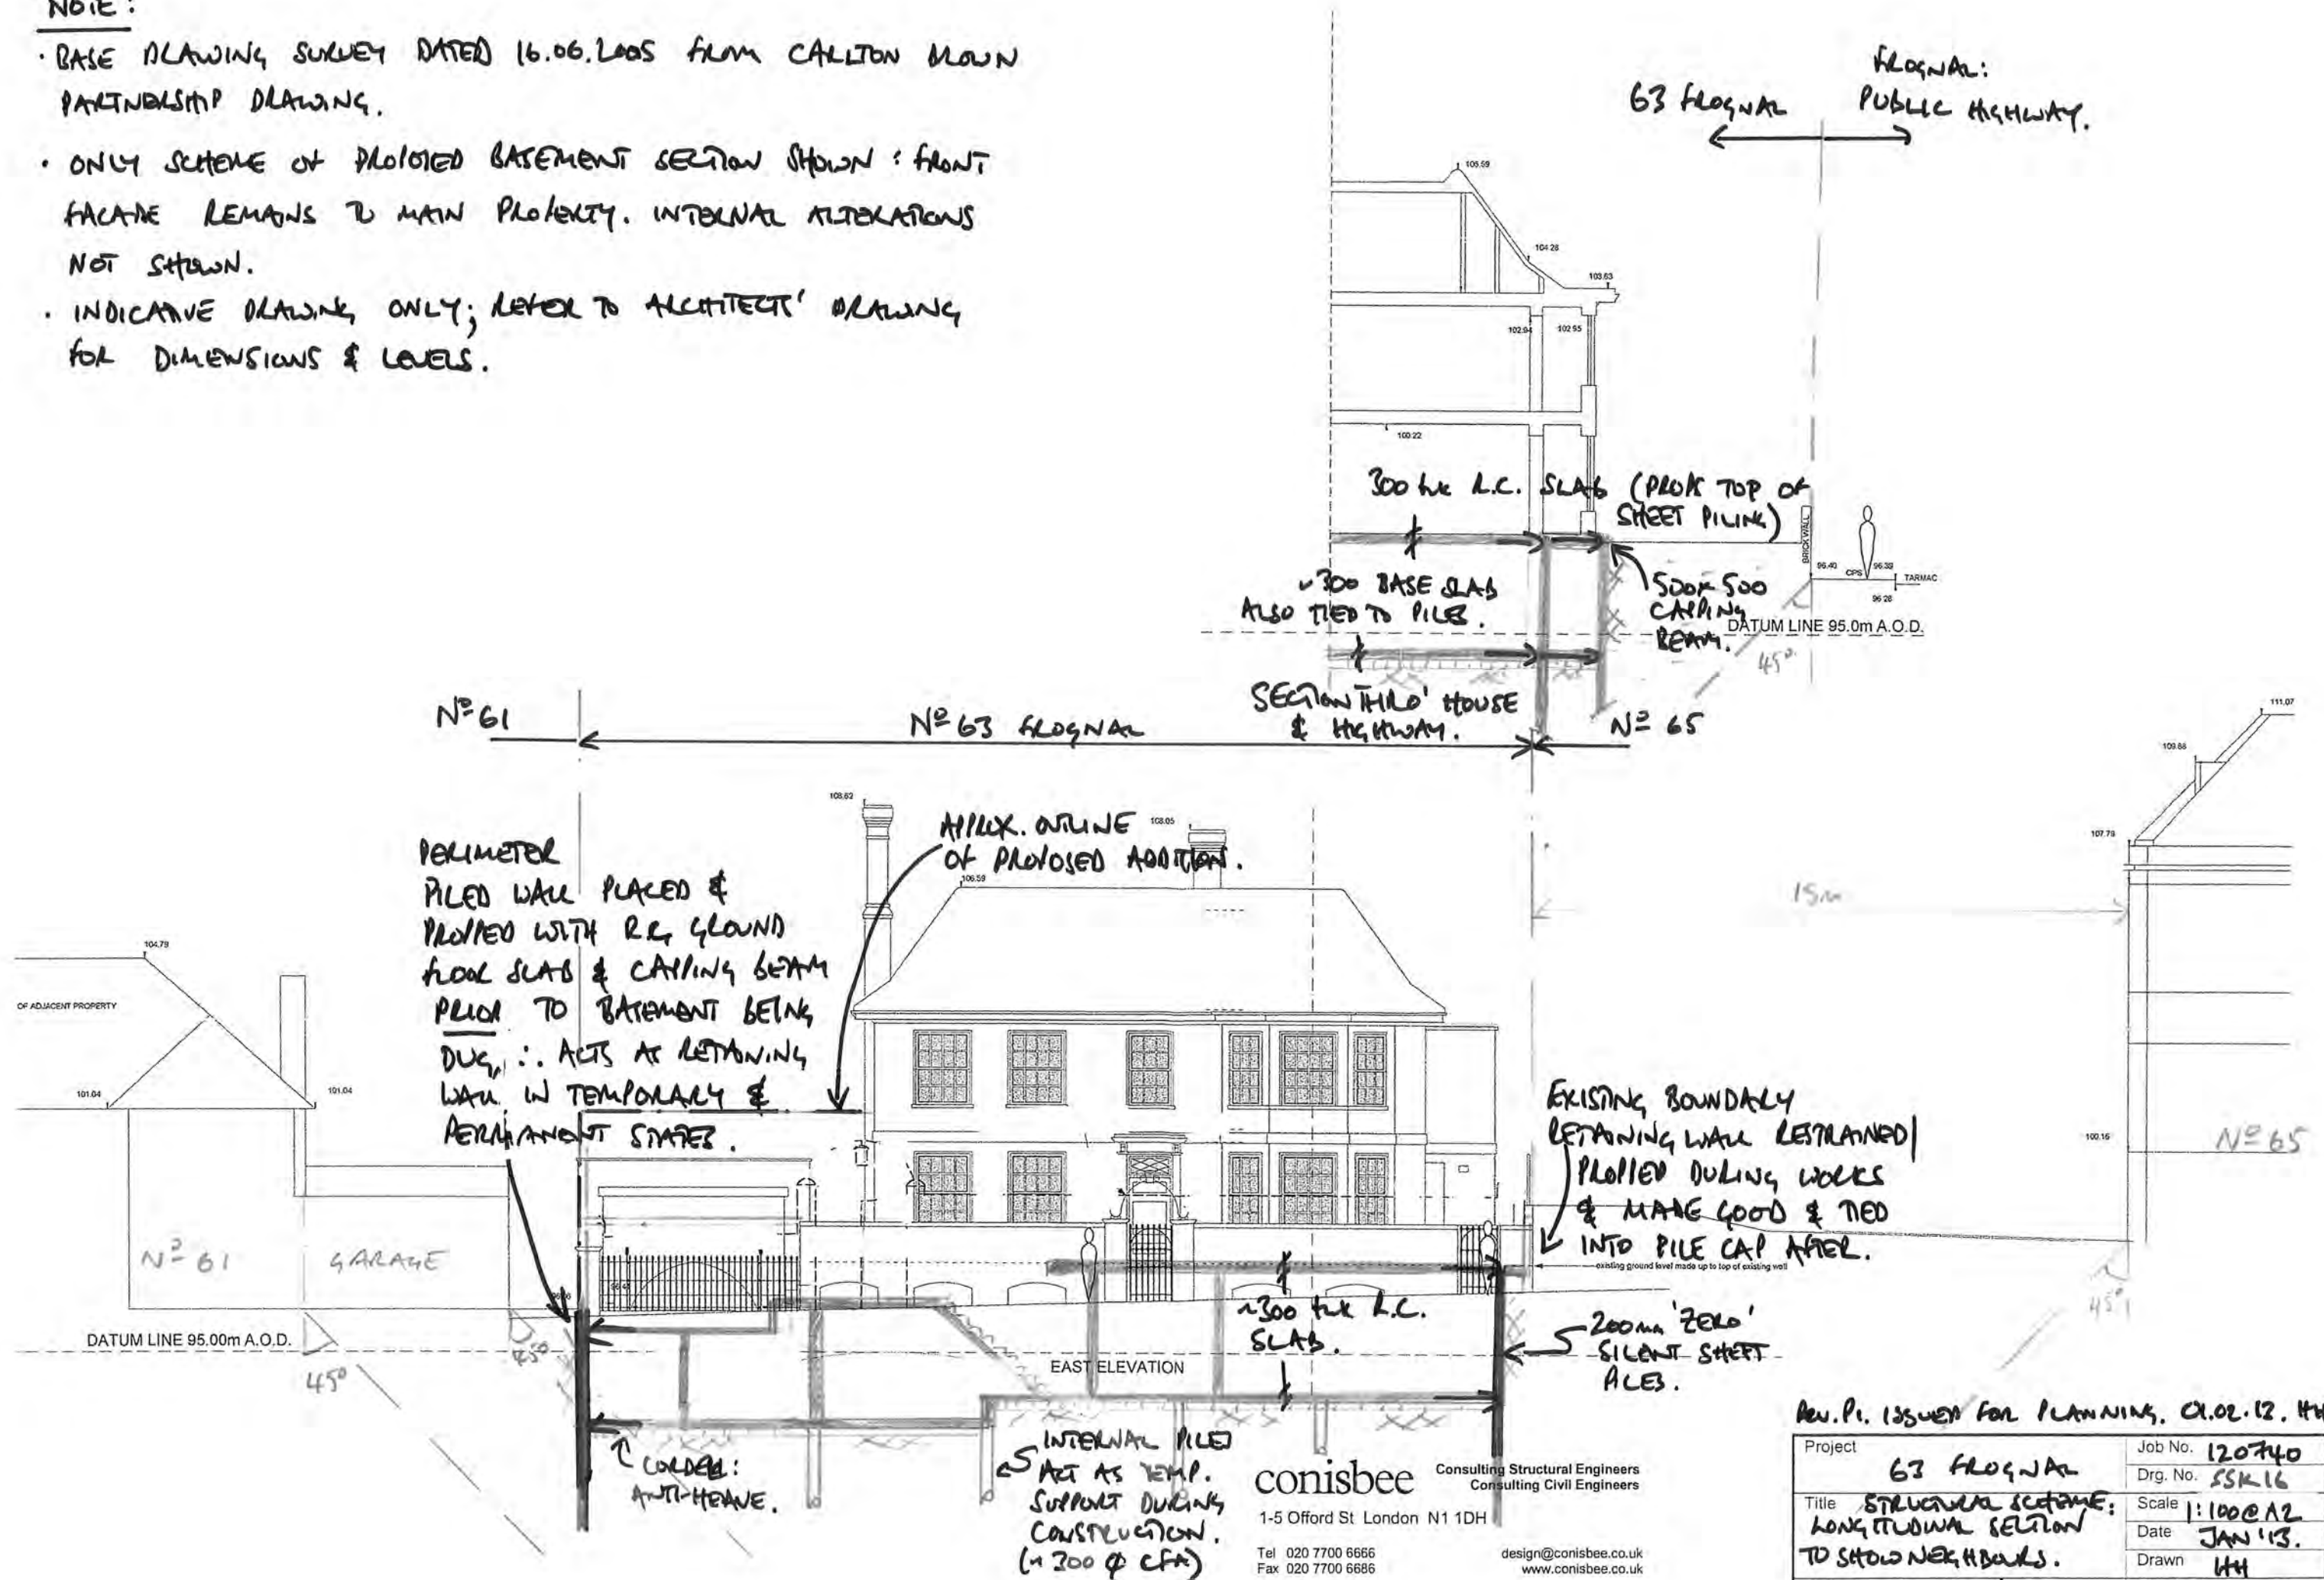 NOTE:
· BASE DRAWING SURVEY DATED 16.06.2005 FROM CARLTON BROWN
PARTNERSHIP DRAWING.
· ONLY SCHEME OF PROPOSED BASEMENT SECTION SHOWN : FRONT
FACADE REMAINS TO MAIN PROPERTY. INTERNAL ALTERATIONS
NOT SHOWN.
· INDICATIVE DRAWING ONLY; REFER TO ARCHITECTS' DRAWING
FOR DIMENSIONS & LEVELS.
63 FROGNAL
FROGNAL:
PUBLIC HIGHWAY.
105.59
104.28
103.63
102.94
102.55
100.22
300 thk R.C. SLAB (PROPS TOP OF
SHEET PILING)
BRICK WALL
96.40
CPS
96.39
TARMAC
96.28
~300 BASE SLAB
ALSO TIED TO PILES.
500x500
CAPPING
BEAM.
DATUM LINE 95.0m A.O.D.
45°
SECTION THRO' HOUSE
& HIGHWAY.
Nº 61
Nº 63 FROGNAL
Nº 65
111.07
109.88
107.79
100.16
Nº 65
45°
15m
108.62
108.05
106.59
APPROX. OUTLINE
OF PROPOSED ADDITION.
PERIMETER
PILED WALL PLACED &
PROPPED WITH R.C. GROUND
FLOOR SLAB & CAPPING BEAM
PRIOR TO BASEMENT BEING
DUG, ∴ ACTS AS RETAINING
WALL IN TEMPORARY &
PERMANENT STATES.
104.79
OF ADJACENT PROPERTY
101.04
101.04
Nº 61
GARAGE
DATUM LINE 95.00m A.O.D.
45°
45°
EXISTING BOUNDARY
RETAINING WALL RESTRAINED/
PROPPED DURING WORKS
& MADE GOOD & TIED
INTO PILE CAP AFTER.
existing ground level made up to top of existing wall
~300 thk R.C.
SLAB.
EAST ELEVATION
200mm 'ZERO'
SILENT SHEET
PILES.
CORDEK:
ANTI-HEAVE.
INTERNAL PILES
ACT AS TEMP.
SUPPORT DURING
CONSTRUCTION.
(~300 φ CFA)
conisbee
Consulting Structural Engineers
Consulting Civil Engineers
1-5 Offord St London N1 1DH
Tel 020 7700 6666
Fax 020 7700 6686
design@conisbee.co.uk
www.conisbee.co.uk
Rev. P1. ISSUED FOR PLANNING. 01.02.13. HH
Project
63 FROGNAL
Job No. 120740
Drg. No. SSK16
Title STRUCTURAL SCHEME:
LONGITUDINAL SECTION
TO SHOW NEIGHBOURS.
Scale 1:100@A2
Date JAN '13.
Drawn HH